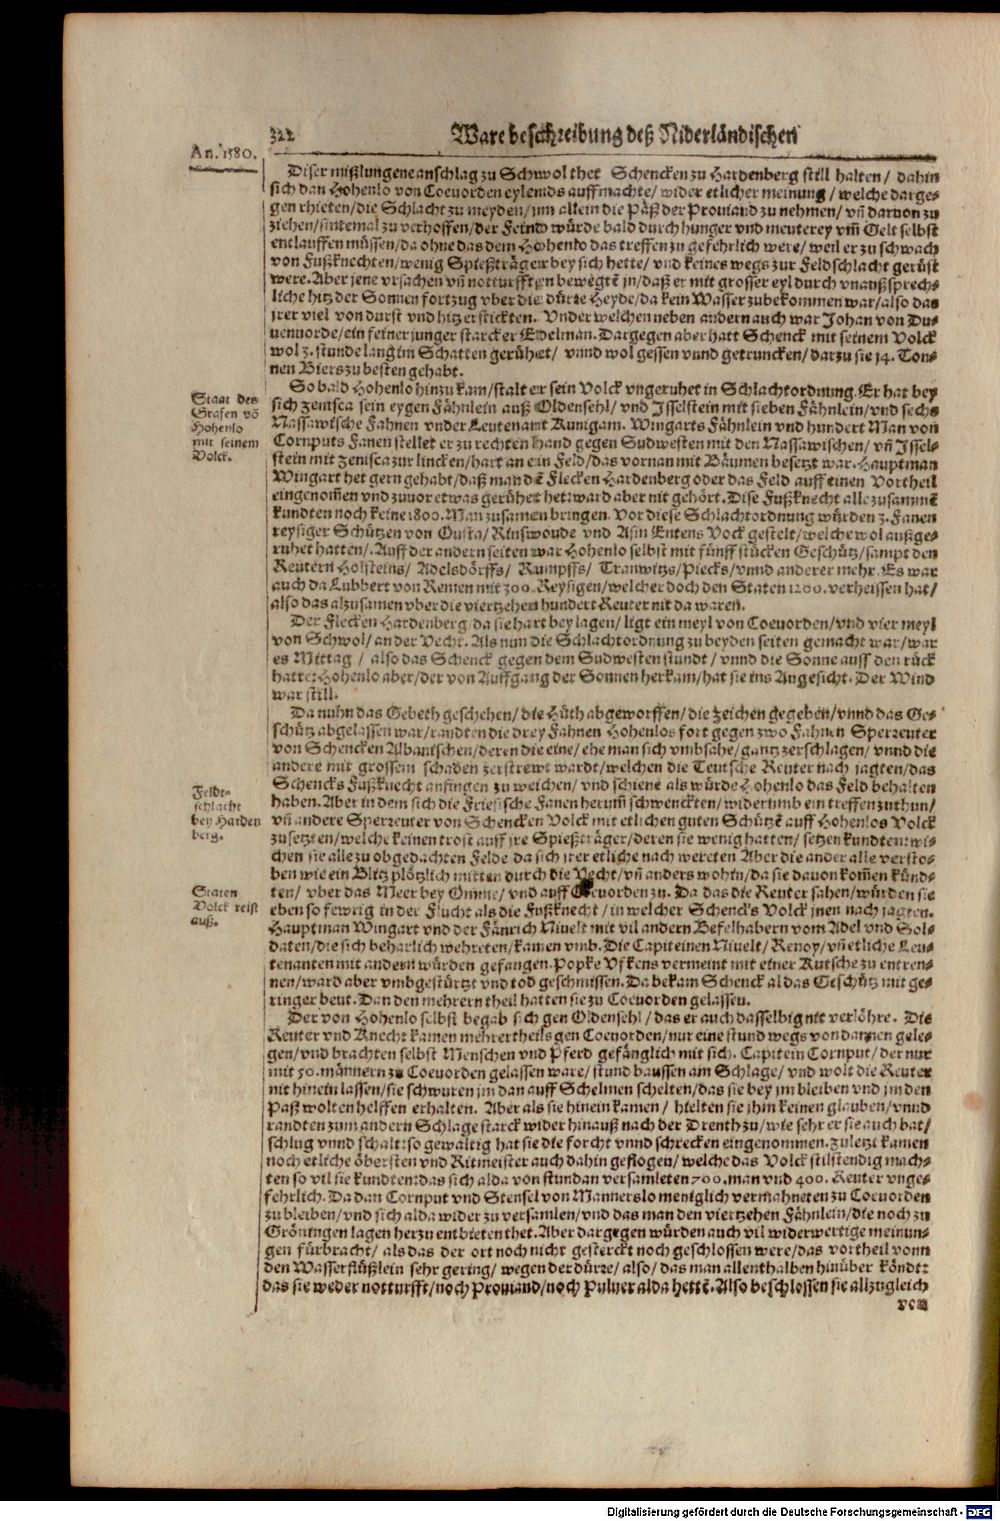 322
Ware beschreibung deß Niderländischen
An. 1580.
Diser mißlungene anschlag zu Schwol thet Schencken zu Hardenberg still halten / dahin
sich dan Hohenlo von Coeuorden eylends auffmachte / wider etlicher meinung / welche darge-
gen rhieten / die Schlacht zu meyden / jm allein die Päß der Prouiand zu nehmen / vñ daruon zu
ziehen / sintemal zu verhoffen / der Feind würde bald durch hunger vnd meuterey vm̃ Gelt selbst
entlauffen müssen / da ohne das dem Hohenlo das treffen zu gefehrlich were / weil er zu schwach
von Fußknechten / wenig Spießträger bey sich hette / vnd keines wegs zur Feldschlacht gerüst
were. Aber jene vrsachen vñ notturfften bewegtẽ jn / daß er mit grosser eyl durch vnaußsprech-
liche hitz der Sonnen fortzug vber die dürre Heyde / da kein Wasser zubekommen war / also das
jrer viel von durst vnd hitz erstickten. Vnder welchen neben andern auch war Johan von Du-
uenuorde / ein feiner junger starcker Edelman. Dargegen aber hatt Schenck mit seinem Volck
wol 3. stunde lang im Schatten gerühet / vnnd wol gessen vnnd getruncken / darzu sie 14. Ton-
nen Biers zu besten gehabt.
So bald Hohenlo hinzu kam / stalt er sein Volck vngeruhet in Schlachtordnung. Er hat bey
Staat des
Grafen võ
Hohenlo
mit seinem
Volck.
sich Zenisca sein eygen Fähnlein auß Oldensehl / vnd Isselstein mit sieben Fähnlein / vnd sechs
Nassawische Fahnen vnder Leutenamt Runigam. Wingarts Fähnlein vnd hundert Man von
Cornputs Fanen stellet er zu rechten Hand gegen Sudwesten mit den Nassawischen / vñ Issel-
stein mit Zenisca zur lincken / hart an ein Feld / das vornan mit Bäumen besetzt war. Hauptman
Wingart het gern gehabt / daß man dẽ Flecken Hardenberg oder das Feld auff einen Vortheil
eingenom̃en vnd zuuor etwas gerühet het: ward aber nit gehört. Dise Fußknecht alle zusammẽ
kundten noch keine 1800. Man zusamen bringen. Vor diese Schlachtordnung würden 3. Fanen
reysiger Schützen von Ousta / Rinswoude vnd Asin Entens Vock gestelt / welche wol außge-
ruhet hatten /. Auff der andern seiten war Hohenlo selbst mit fünff stücken Geschütz / sampt den
Reutern Holsteins / Adelsdörffs / Rumpffs / Tranwitzs / Piecks / vnnd anderer mehr. Es war
auch da Lubbert von Remen mit 300. Reysigen / welcher doch den Staten 1200. verheissen hat /
also das alzusamen vber die viertzehen hundert Reuter nit da waren.
Der Flecken Hardenberg / da sie hart bey lagen / ligt ein meyl von Coeuorden / vnd vier meyl
von Schwol / an der Vecht. Als nun die Schlachtordnung zu beyden seiten gemacht war / war
es Mittag / also das Schenck gegen dem Sudwesten stundt / vnnd die Sonne auff den rück
hatte: Hohenlo aber / der von Auffgang der Sonnen herkam / hat sie ins Angesicht. Der Wind
war still.
Da nuhn das Gebeth geschehen / die Hüth abgeworffen / die Zeichen gegeben / vnnd das Ge-
schütz abgelassen war / randten die drey Fahnen Hohenlos fort gegen zwo Fahnen Sperreuter
von Schencken Albanischen / deren die eine / ehe man sich vmbsahe / gantz zerschlagen / vnnd die
andere mit grossem schaden zerstrewt wardt / welchen die Teutsche Reuter nach jagten / das
Schencks Fußknecht anfingen zu weichen / vnd schiene als würde Hohenlo das Feld behalten
Feldt-
schlacht
bey Harden
berg.
haben. Aber in dem sich die Friesische Fanen herum̃ schwenckten / widerumb ein treffen zu thun /
vñ andere Sperreuter von Schencken Volck mit etlichen guten Schützẽ auff Hohenlos Volck
zusetzten / welche keinen trost auff jre Spießträger / deren sie wenig hatten / setzen kundten: wi-
chen sie alle zu obgedachten Felde da sich jrer etliche nach wereten Aber die ander alle versto-
ben wie ein Blitz plötzlich mitten durch die Vecht / vñ anders wohin / da sie dauon kom̃en künd-
Staten
Volck reist
auß.
ten / vber das Meer bey Omme / vnd auff Coeuorden zu. Da das die Reuter sahen / würden sie
eben so fewrig in der Flucht als die Fußknecht / in welcher Schencks Volck jnen nach jagten.
Hauptman Wingart vnd der Fänrich Niuelt mit vil andern Befelhabern vom Adel vnd Sol-
daten / die sich beharlich wehreten / kamen vmb. Die Capiteinen Niuelt / Renoy / vñ etliche Leu-
tenanten mit andern würden gefangen. Popke Vfkens vermeint mit einer Kutsche zu entren-
nen / ward aber vmbgestürtzt vnd tod geschmissen. Da bekam Schenck al das Geschütz mit ge-
ringer beut. Dan den mehrern theil hatten sie zu Coeuorden gelassen.
Der von Hohenlo selbst begab sich gen Oldensehl / das er auch dasselbig nit verlöhre. Die
Reuter vnd Knecht kamen mehrertheils gen Coeuorden / nur eine stund wegs von dannen gele-
gen / vnd brachten selbst Menschen vnd Pferd gefänglich mit sich. Capitein Cornput / der nur
mit 50. männern zu Coeuorden gelassen ware / stund haussen am Schlage / vnd wolt die Reuter
nit hinein lassen / sie schwuren jm dan auff Schelmen schelten / das sie bey jm bleiben vnd jm den
Paß wolten helffen erhalten. Aber als sie hinein kamen / hielten sie jhm keinen glauben / vnnd
randten zum andern Schlage starck wider hinauß nach der Drenth zu / wie sehr er sie auch bat /
schlug vnnd schalt: so gewaltig hat sie die forcht vnnd schrecken eingenommen. Zuletzt kamen
noch etliche öbersten vnd Ritmeister auch dahin geflogen / welche das Volck stilstendig mach-
ten so vil sie kundten: das sich alda von stundan versamleten 700. man vnd 400. Reuter vnge-
fehrlich. Da dan Cornput vnd Stensel von Mannerslo meniglich vermahneten zu Coeuorden
zu bleiben / vnd sich alda wider zu versamlen / vnd das man den viertzehen Fähnlein / die noch zu
Gröningen lagen herzu entbieten thet. Aber dargegen würden auch vil widerwertige meinun-
gen fürbracht / als das der ort noch nicht gesterckt noch geschlossen were / das vortheil vonn
den Wasserflüßlein sehr gering / wegen der dürre / also / das man allenthalben hinüber köndt:
das sie weder notturfft / noch Prouiand / noch Puluer alda hettẽ. Also beschlossen sie allzugleich
Digitalisierung gefördert durch die Deutsche Forschungsgemeinschaft - DFG